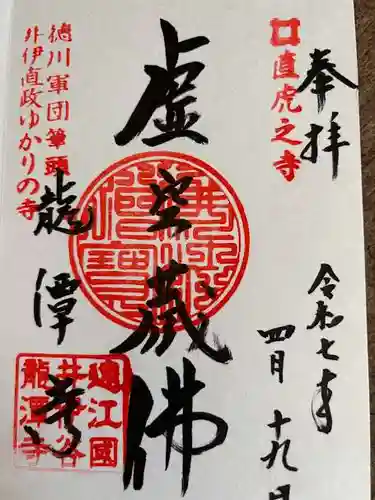 奉拝
令和七年
四月十九日
直虎之寺
虚空蔵佛
徳川軍団筆頭
井伊直政ゆかりの寺
龍潭寺
遠江國
井伊谷
龍潭寺